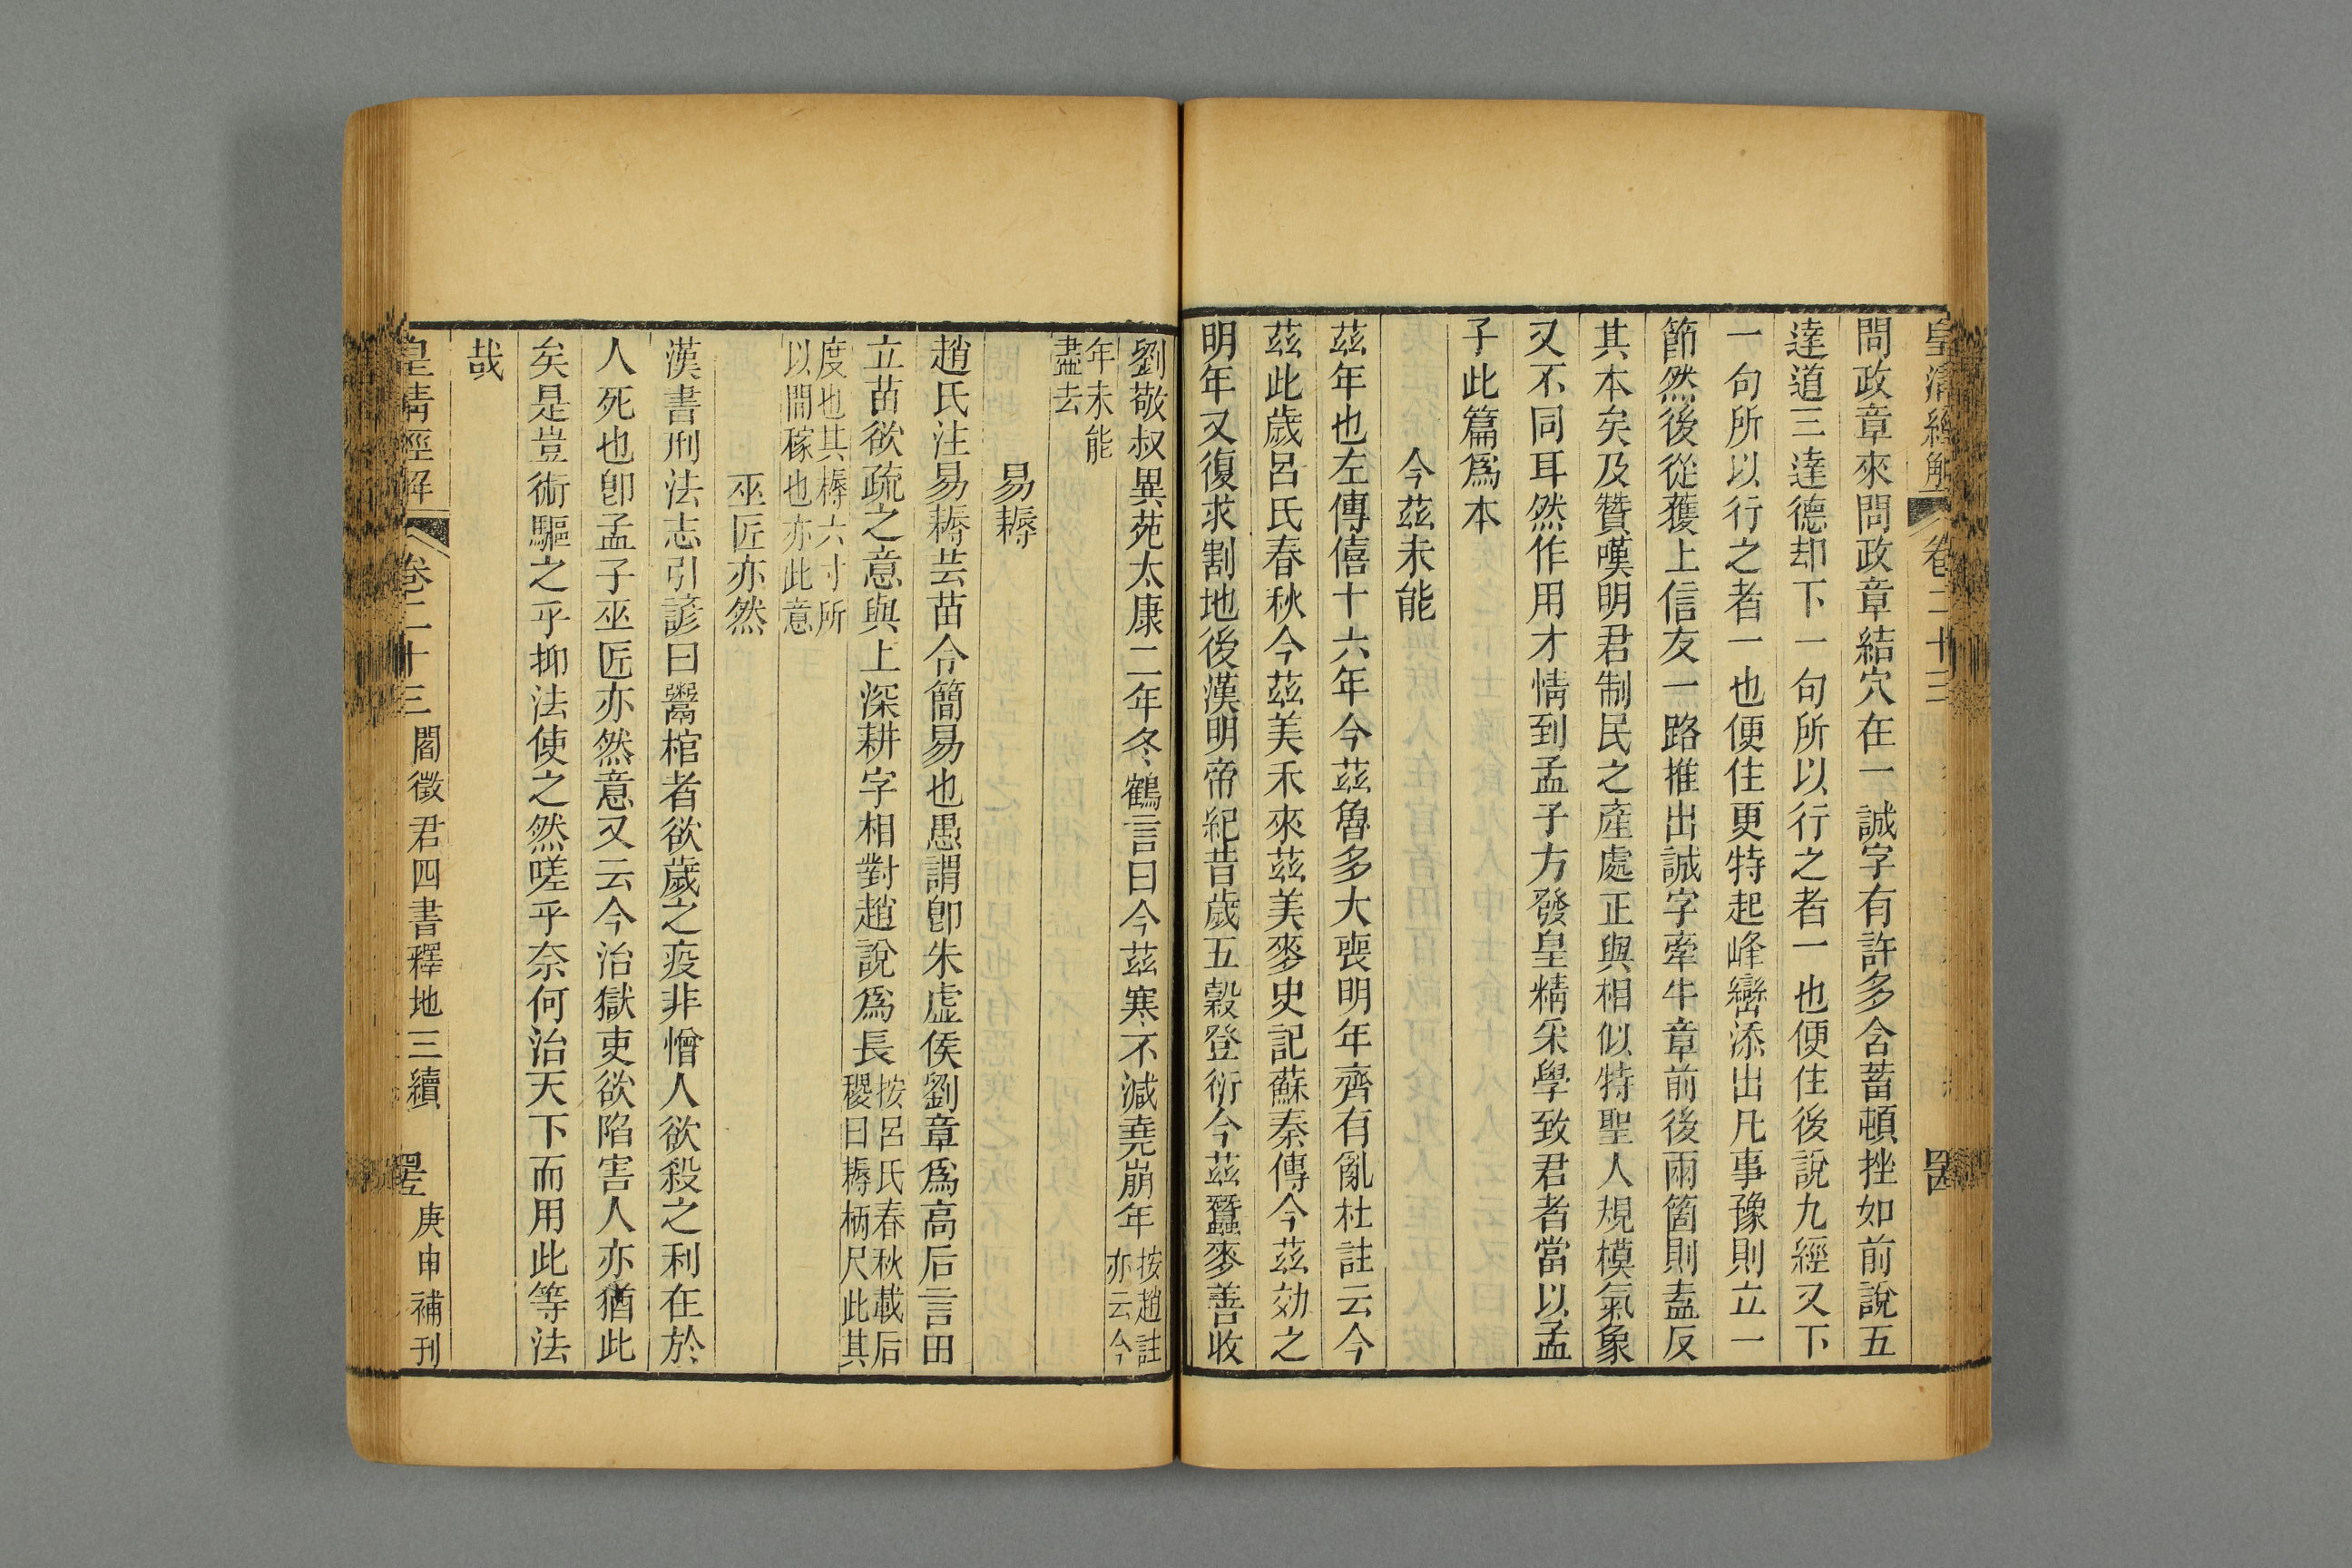 皇清經解 卷二十三
問政章來問政章結穴在一誠字有許多含蓄頓挫如前說五
達道三達德却下一句所以行之者一也便住後說九經又下
一句所以行之者一也便住更特起峰巒添出凡事豫則立一
節然後從獲上信友一路推出誠字牽牛章前後兩箇則盍反
其本矣及贊嘆明君制民之產處正與相似特聖人規模氣象
又不同耳然作用才情到孟子方發皇精采學致君者當以孟
子此篇爲本
今茲未能
茲年也左傳僖十六年今茲魯多大喪明年齊有亂杜註云今
茲此歲呂氏春秋今茲美禾來茲美麥史記蘇秦傳今茲効之
明年又復求割地後漢明帝紀昔歲五穀登衍今茲蠶麥善收
劉敬叔異苑太康二年冬鶴言曰今茲寒不減堯崩年按趙註亦云今
年未能盡去
易耨
趙氏注易耨芸苗令簡易也愚謂卽朱虛侯劉章爲高后言田
立苗欲疏之意與上深耕字相對趙說爲長按呂氏春秋載后稷曰耨柄尺此其
度也其耨六寸所以間稼也亦此意
巫匠亦然
漢書刑法志引諺曰鬻棺者欲歲之疫非憎人欲殺之利在於
人死也卽孟子巫匠亦然意又云今治獄吏欲陷害人亦猶此
矣是豈術驅之乎抑法使之然嗟乎奈何治天下而用此等法
哉
皇清經解 卷二十三 閻徵君四書釋地三續 庚申補刊